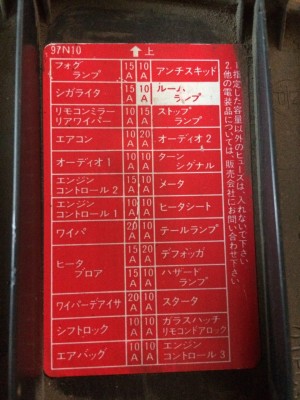 97N10
⇧上
フォグランプ 15A 10A アンチスキッド
シガライタ 15A 10A ルームランプ
リモコンミラー リアワイパー 10A 15A ストップランプ
エアコン 10A 20A オーディオ2
オーディオ1 10A 10A ターンシグナル
エンジンコントロール2 15A 10A メータ
エンジンコントロール1 10A 10A ヒータシート
ワイパ 20A 10A テールランプ
ヒータブロア 15A 20A デフォッガ
15A 10A ハザードランプ
ワイパーデアイサ 20A 10A スタータ
シフトロック 10A 10A ガラスハッチ リモコンドアロック
エアバッグ 10A 10A エンジンコントロール3
1.指定した容量以外のヒューズは、入れないで下さい
2.他の電装品については、販売会社にお問い合わせ下さい